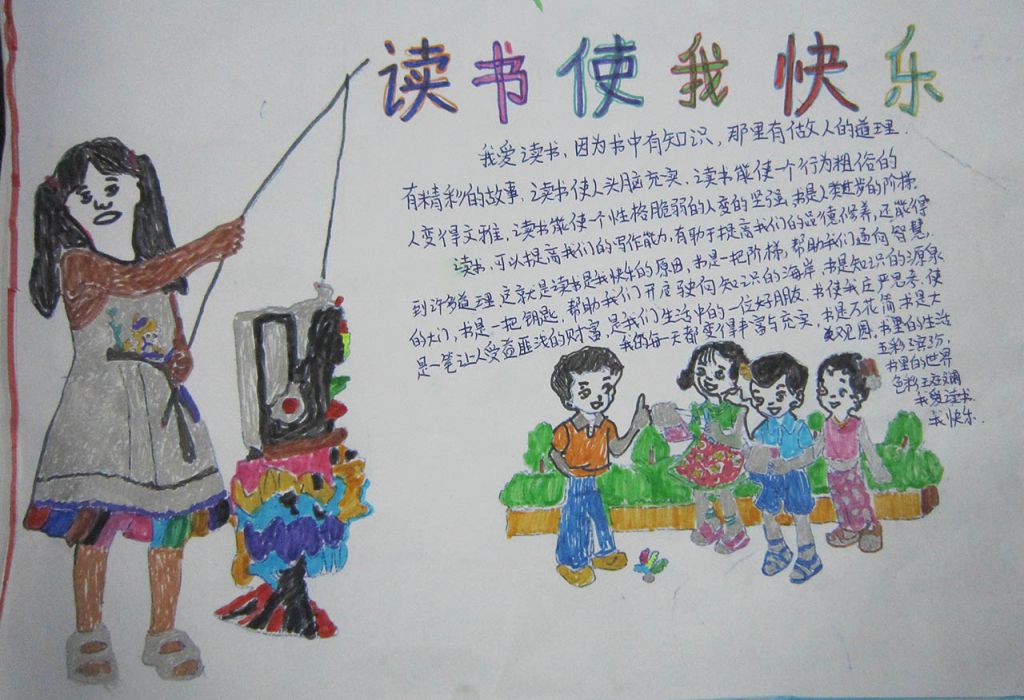 读书使我快乐
我爱读书，因为书中有知识，那里有做人的道理.
有精彩的故事.读书使人头脑充实.读书能使一个行为粗俗的
人变得文雅.读书能使一个性格脆弱的人变的坚强.书是人类进步的阶梯.
读书.可以提高我们的写作能力，有助于提高我们的品德修养，还能得
到许多道理.这就是读书是我快乐的原因.书是一把阶梯，帮助我们通向智慧.
的大门，书是一把钥匙，帮助我们开启驶向知识的海岸.书是知识的源泉
是一笔让人受益匪浅的财富，是我们生活中的一位好朋友.书使我庄严思考.使
我的每一天都变得丰富与充实，书是万花筒.书是大
观园.书里的生活
五彩缤纷，
书里的世界
色彩斑斓
我爱读书.
我快乐.